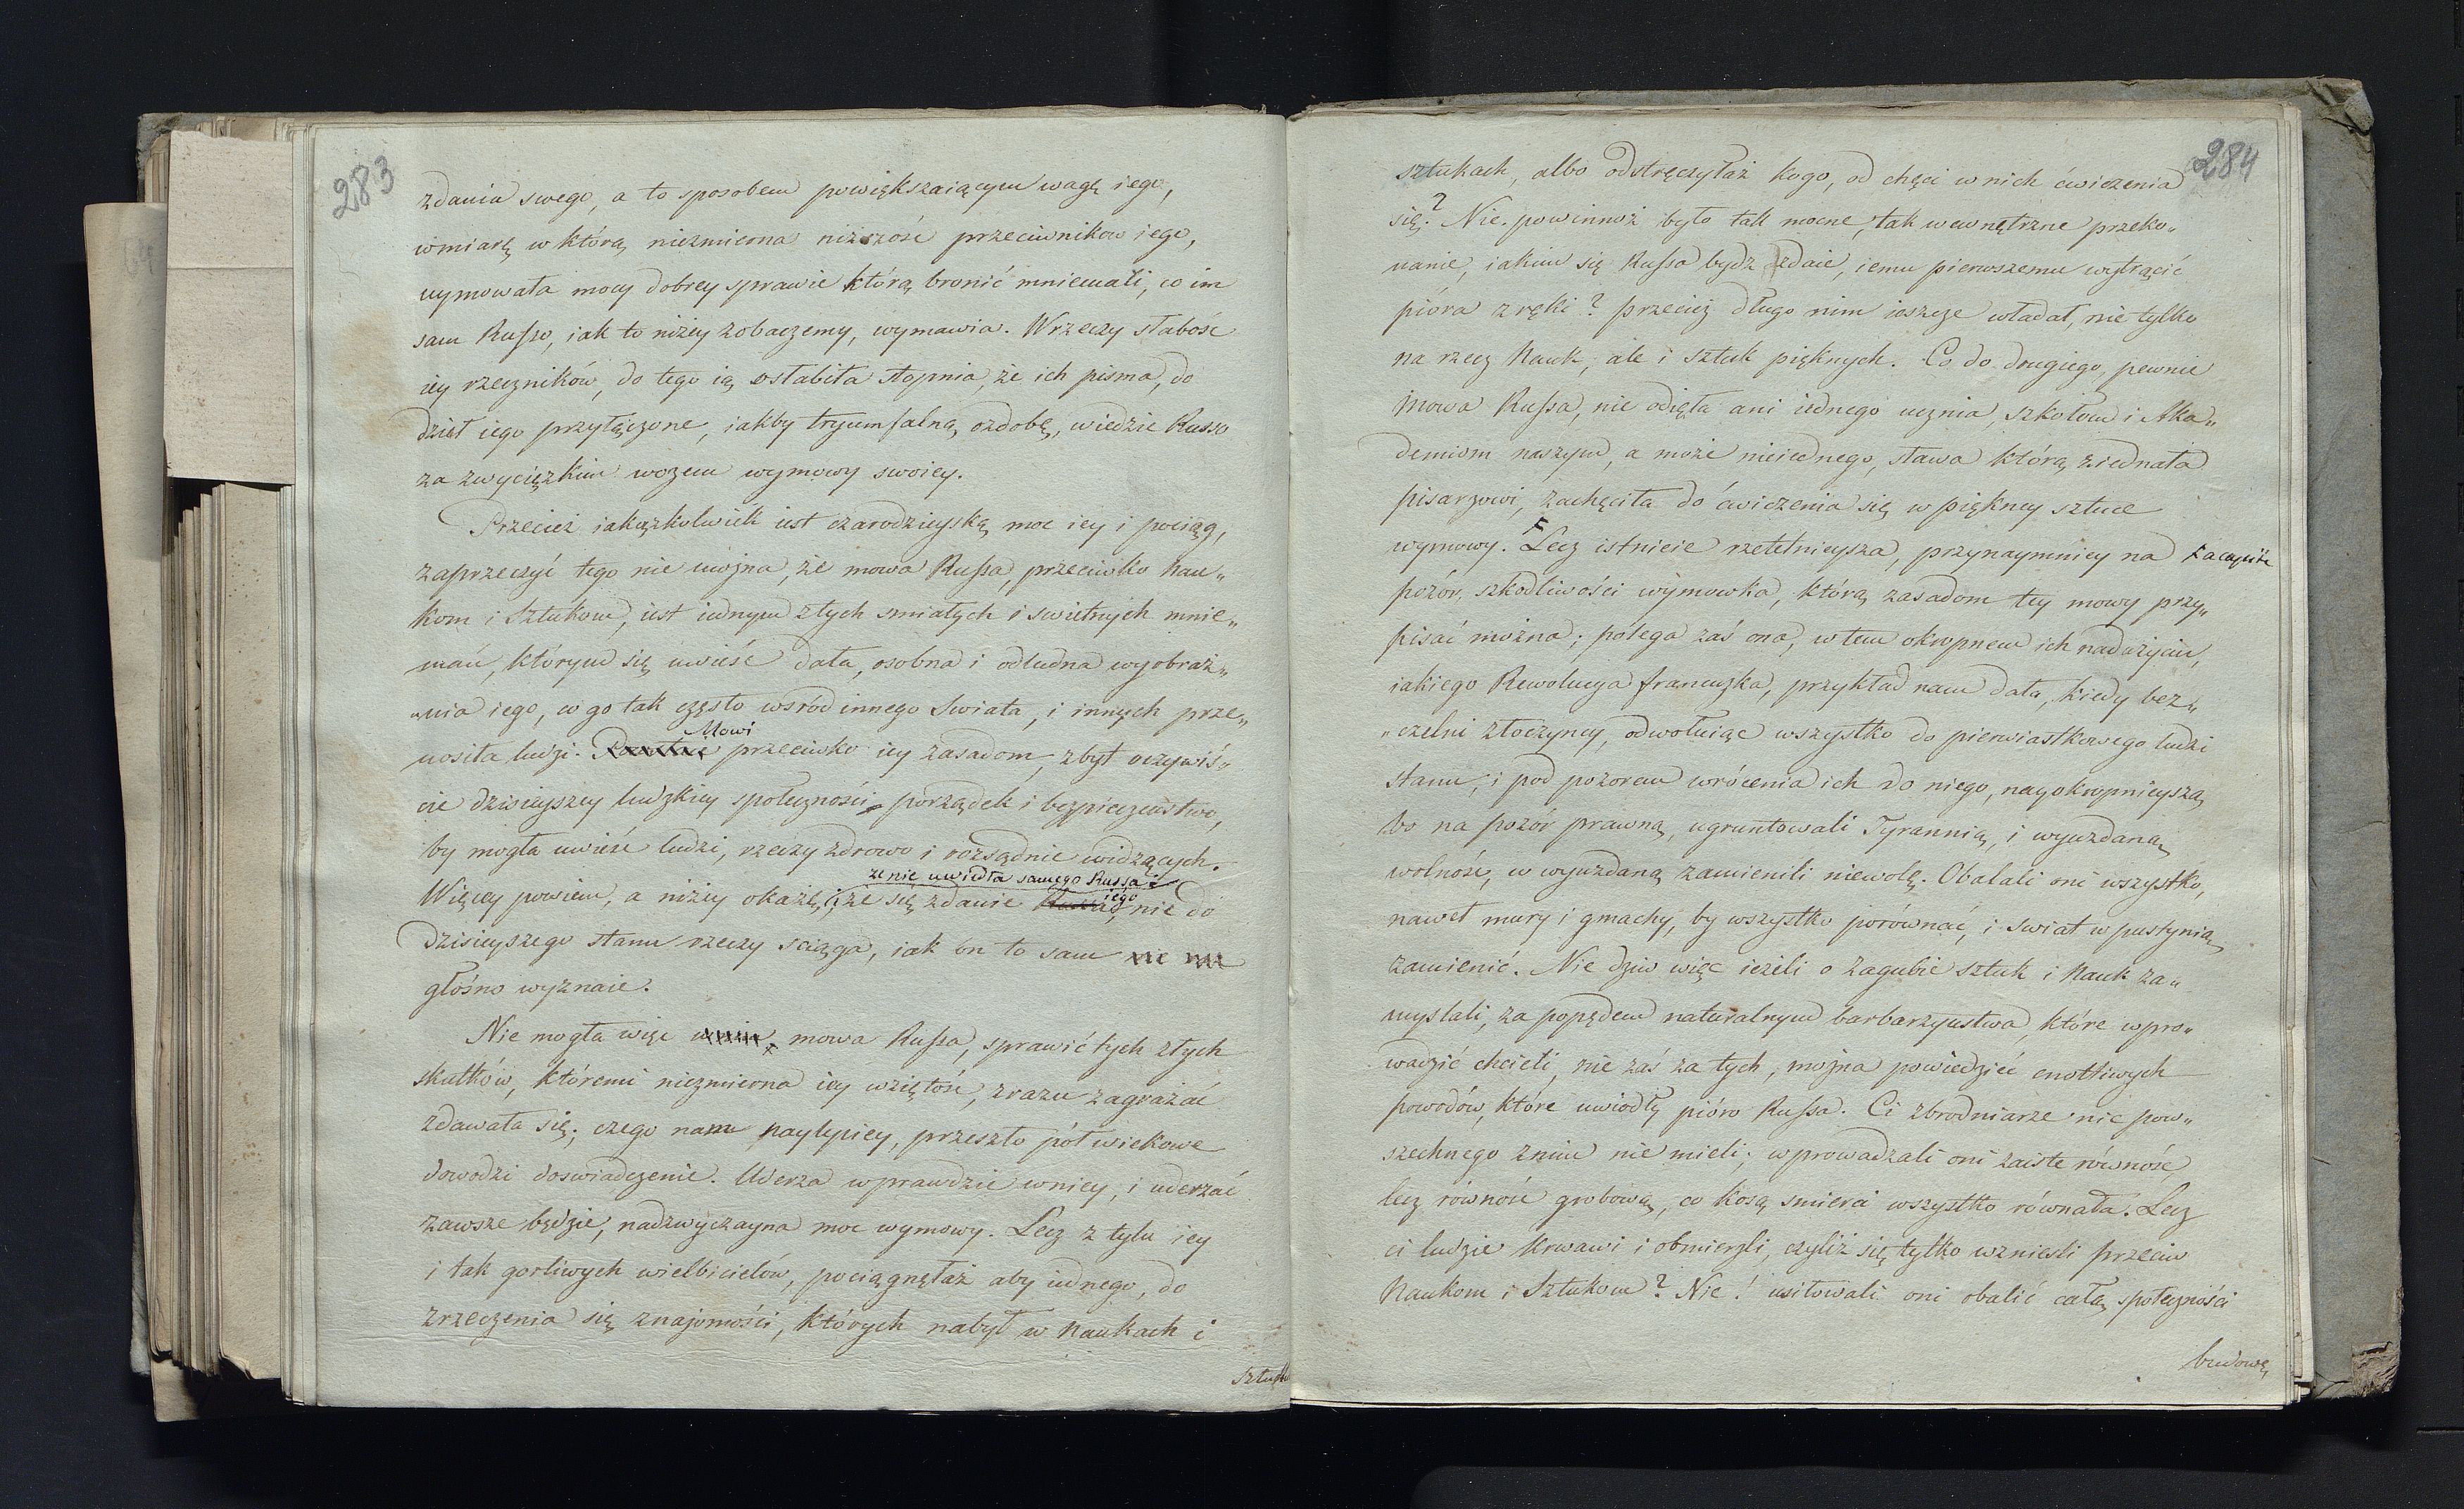 283
zdania swego, a to sposobem powiększaiącym wagę iego,
wmiarę w którą niezmierna niższość przeciwników iego,
uymowała mocy dobrey sprawie którą bronić mniemali, co im
sam Russo, iak to niżey zobaczemy, wymawia. Wrzeczy słabość
iey rzeczników, do tego ią osłabiła stopnia, że ich pisma, do
dzieł iego przyłączone, iakby tryumfalną ozdobę, wiedzie Russo
za zwycięzkim wozem wymowy swoiey.
Przecież iakążkolwiek iest czarodzieyską moc iey i pociąg,
zaprzeczyć tego nie można, że mowa Russa, przeciwko Nau„
kom i Sztukom, iest iednym z tych smiałych i swietnych mnie„
mań, którym się uwieść dała, osobna i odludna wyobraź„
„nia iego, co go tak często wsród innego Swiata, i innych prze„
nosiła ludzi. Mowi przeciwko iey zasadom, zbyt oczywiś„
cie dzisieyszey ludzkiey społeczności porządek i bezpieczeństwo,
by mogła uwieść ludzi, rzeczy zdrowo i rozsądnie widzących.
że nie uwiodła samego Russa:
Więcey powiem, a niżey okażę, i że się zdanie iego nie do
dzisieyszego stanu rzeczy sciąga, iak on to sam
głośno wyznaie.
Nie mogła więc mowa Russa, sprawić tych złych
skutków, któremi niezmierna iey wziętość, zrazu zagrażać
zdawała się; czego nam naylepiey, przeszło pół wiekowe
dowodzi doswiadczenie. Uderza wprawdzie wniey, i uderzać
zawsze będzie, nadzwyczayna moc wymowy. Lecz z tylu iey
i tak gorliwych wielbicielów, pociągnęłaż aby iednego, do
zrzeczenia się znajomości, których nabył w Naukach i
sztuk
284
sztukach, albo odstręczyłaż kogo, od chęci w nich ćwiczenia
się? Nie. powinnoż było tak mocne, tak wewnętrzne przeko„
nanie, iakim się Russa bydz zdaie, iemu pierwszemu wytrącić
pióra z ręki? przecież długo nim ieszcze władał, nie tylko
na rzecz Nauk, ale i sztuk pięknych. Co do drugiego, pewnie
mowa Russa, nie odięła ani iednego ucznia, szkołom i Aka„
demiom naszym, a może nieiednego, sława którą ziednała
pisarzowi, zachęciła do ćwiczenia się w piękney sztuce
wymowy. Lecz istnieie rzetelnieysza, przynaymniey na
pozór, szkodliwości wymowka, którą zasadom tey mowy przy„
pisać można; polega zaś ona, w tem okropnem ich nadużyciu,
iakiego Rewolucya francuzka, przykład nam dała, kiedy bez„
„czelni złoczyncy, odwołuiąc wszystko do pierwiastkowego ludzi
stanu, i pod pozorem wrócenia ich do niego, nayokropnieyszą
bo na pozór prawną, ugruntowali Tyrannią, i wyuzdaną
wolność, w wyuzdaną zamienili niewolę. Obalali oni wszystko,
nawet mury i gmachy, by wszystko porównać, i swiat w pustynią
zamienić. Nie dziw więc ieżeli o zagubie sztuk i Nauk za„
myslali, za popędem naturalnym barbarzyństwa, które wpro„
wadzić chcieli, nie zaś za tych, można powiedzieć cnotliwych
powodów, które uwiodły pióro Russa. Ci zbrodniarze nic pow„
szechnego znim nie mieli; wprowadzali oni zaiste równość,
lecz równość grobową, co kosą smierci wszystko równała. Lecz
ci ludzie krwawi i obmierzli, czyliż się tylko wzniesli przeciw
Naukom i Sztukom? Nie! usiłowali oni obalić całą społeczności
budowę,